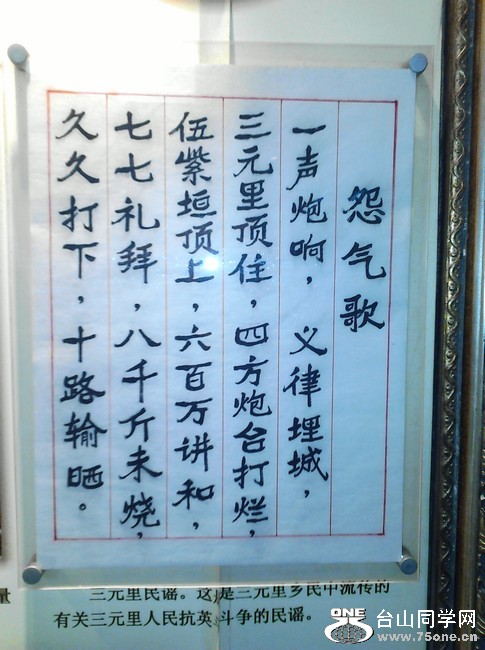 怨气歌
一声炮响，义律埋城，
三元里顶住，四方炮台打烂，
伍紫垣顶上，六百万讲和，
七七礼拜，八千斤未烧，
久久打下，十路输晒。
三元里民谣。这是三元里乡民中流传的
有关三元里人民抗英斗争的民谣。
量
ONE
台山同学网
www.75one.com